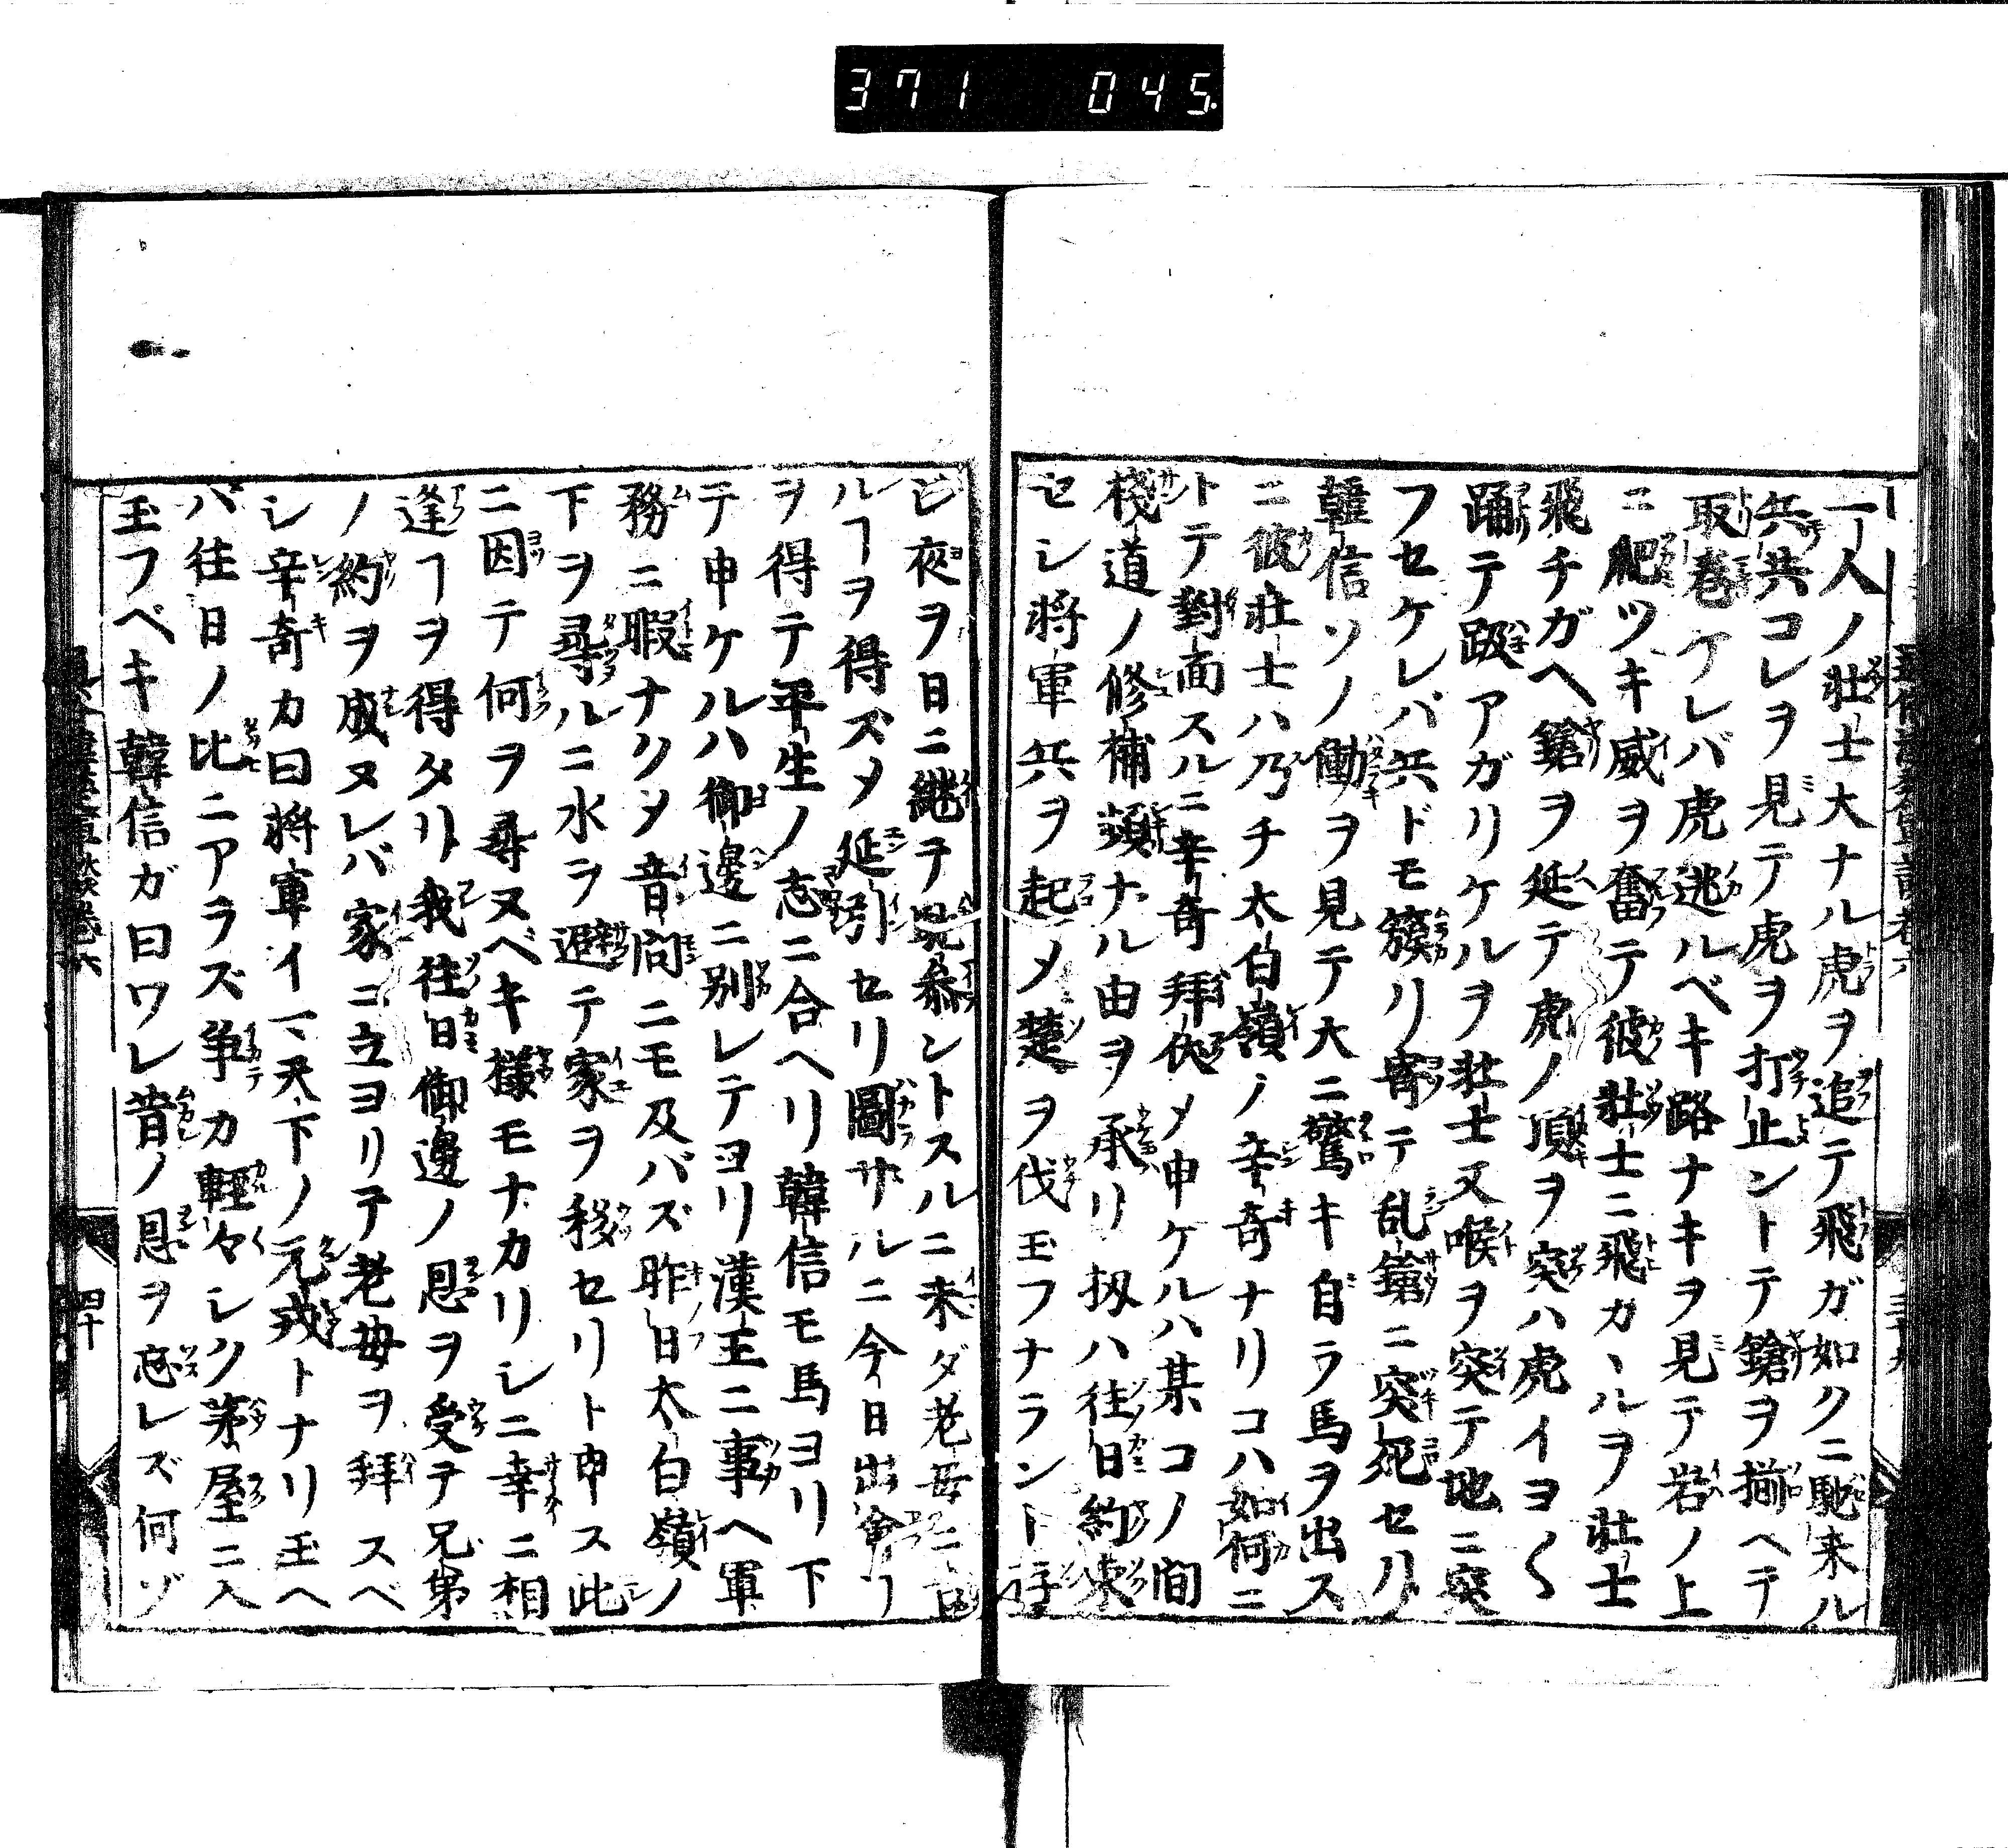 371 045
一人ノ壯士大ナル虎ヲ追テ飛ガ如クニ馳来ル
兵共コレヲ見テ虎ヲ打止ントテ鎗ヲ揃ヘテ
取巻ケレバ虎逃ルベキ路ナキヲ見テ岩ノ上
ニ爬ツキ威ヲ奮テ彼壯士ニ飛カヽルヲ壯士
飛チガヘ鎗ヲ延テ虎ノ頂ヲ突ハ虎イヨ〱
踊テ跋アガリケルヲ壯士又喉ヲ突テ地ニ突
フセケレバ兵ドモ簇リ寄テ乱鎗ニ突死セリ
韓信ソノ働ヲ見テ大ニ驚キ自ラ馬ヲ出ス
ニ彼壯士ハ乃チ太白嶺ノ辛奇ナリコハ如何ニ
トテ對面スルニ辛奇拜伏メ申ケルハ某コノ間
棧道ノ修補頻ナル由ヲ承リ扨ハ往日約束
セシ将軍兵ヲ起メ楚ヲ伐玉フナラント
ビ夜ヲ日ニ継テ見參ントスルニ未ダ老母ニ
ルヿヲ得ズメ延引セリ圖サルニ今日出會
ヲ得テ平生ノ志ニ合ヘリ韓信モ馬ヨリ下
テ申ケルハ御邊ニ別レテヨリ漢王ニ事ヘ軍
務ニ暇ナクメ音問ニモ及バズ昨日太白嶺ノ
下ヲ尋ルニ水ヲ避テ家ヲ移セリト申ス此
ニ因テ何ヲ尋ヌベキ様モナカリシニ幸ニ相
逢ヿヲ得タリ我往日御邊ノ恩ヲ受テ兄弟
ノ約ヲ成ヌレバ家ニ立ヨリテ老母ヲ拜スベ
シ辛奇カ曰将軍イマ天下ノ元戎トナリ玉ヘ
バ往日ノ比ニアラズ争カ軽々シク茅屋ニ入
玉フベキ韓信ガ曰ワレ昔ノ恩ヲ忘レズ何ゾ
四十